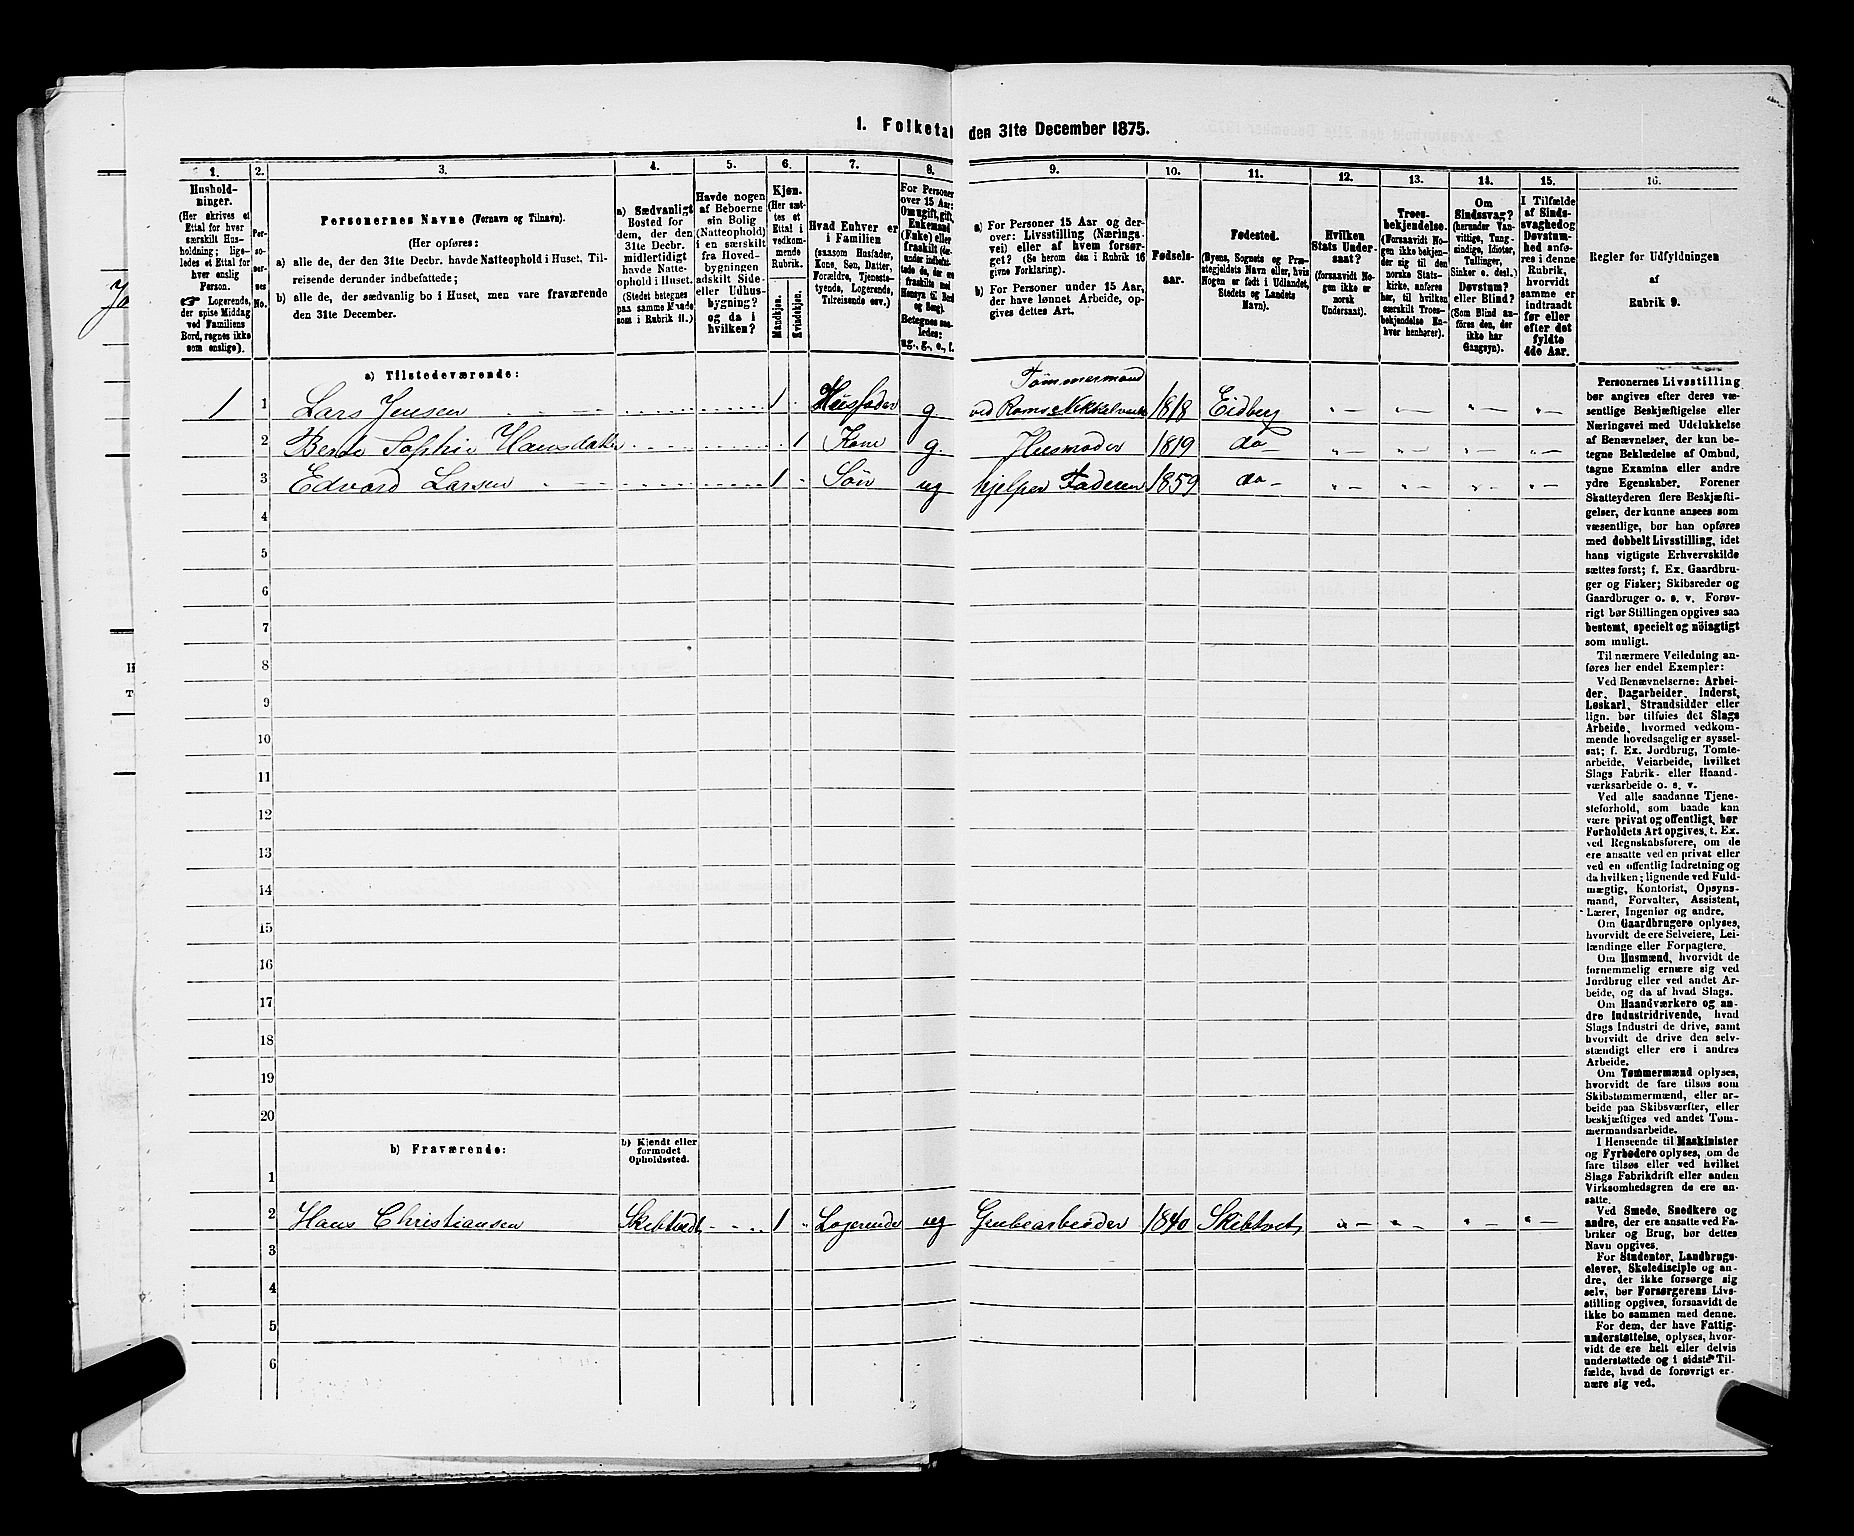 1. Folketal den 31te December 1875.
1.
Hushold-
ninger.
(Her skrives et
Ettal for hver
særskilt Hus-
holdning; lige-
ledes et Ettal for
hver enslig
Person.
☞ Logerende,
der spise Middag
ved Familiens
Bord, regnes ikke
som enslige).
2.
Per-
so-
ner-
nes
No.
3.
Personernes Navne (Fornavn og Tilnavn).
(Her opføres:
a) alle de, der den 31te Decbr. havde Natteophold i Huset, Til-
reisende derunder indbefattede;
b) alle de, der sædvanlig bo i Huset, men vare fraværende
den 31te December.
4.
a) Sædvanligt
Bosted for
dem, der den
31te Decbr.
midlertidigt
havde Natte-
ophold i Huset.
(Stedet betegnes
paa samme Maade
som i Rubrik 11.)
5.
Havde nogen
af Beboerne
sin Bolig
(Natteophold)
i en særskilt
fra Hoved-
bygningen
adskilt Side-
eller Udhus-
bygning?
og da i
hvilken?
6.
Kjøn.
(Her sæt-
tes et
Ettal i
vedkom-
mende
Rubrik.)
Mandkjøn.
Kvindekjøn.
7.
Hvad Enhver er
i Familien
(saasom Husfader,
Kone, Søn, Datter,
Forældre, Tjeneste-
tyende, Logerende,
Tilreisende osv.)
8.
For Personer
over 15 Aar:
Om ugift, gift,
Enkemand
(Enke) eller
fraskilt
Betegnes saa-
ledes:
ug., g., e., f.
9.
a) For Personer 15 Aar og der-
over: Livsstilling (Nærings-
vei) eller af hvem forsør-
get? (Se herom den i Rubrik 16
givne Forklaring).
b) For Personer under 15 Aar,
der have lønnet Arbeide, op-
gives dettes Art.
10.
Fødsels-
aar.
11.
Fødested.
(Byens, Sognets og Præ-
stegjeldets Navn eller, hvis
Nogen er født i Udlandet,
Stedets og Landets
Navn).
12.
Hvilken
Stats Under-
saat?
(forsaavidt No-
gen ikke er
norsk
Undersaat).
13.
Troes-
bekjendelse.
(Forsaavidt No-
gen ikke bekjen-
der sig til den
norske Stats-
kirke, anføres
her, til hvilken
særskilt Troes-
bekjendelse En-
hver henhører).
14.
Om
Sindssvag?
(herunder Van-
vittige, Tung-
sindige, Idioter,
Tullinger,
Sinker o. desl.)
Døvstum?
eller Blind?
(Som Blind an-
føres den, der
ikke har
Gangsyn).
15.
I Tilfælde
af Sinds-
svaghed og
Døvstum-
hed anfø-
res i denne
Rubrik,
hvorvidt
samme er
indtraadt
før eller
efter det
fyldte
4de Aar.
16.
Regler for Udfyldningen
af
Rubrik 9.
a) Tilstedeværende:
Tømmermand
1 1 Lars Jensen 1 Husfader g ved Roms Nikkelverk 1818 Eidberg
2 Bente Sophie Hansdatter 1 Kone g. Husmoder 1819 do
3 Edvard Larsen 1 Søn ug hjelper Faderen 1859 do
4
5
6
7
8
9
10
11
12
13
14
15
16
17
18
19
20
b) Fraværende:
b) Kjendt eller
formodet
Opholdssted.
1
2 Hans Christiansen Skibtvedt 1 Logerende ug Grubearbeider 1840 Skibtvet
3
4
5
6
Personernes Livsstilling
bør angives efter deres væ-
sentlige Beskjæftigelse eller
Næringsvei med Udelukkelse
af Benævnelser, der kun be-
tegne Beklædelse af Ombud,
tagne Examina eller andre
ydre Egenskaber. Forener
Skatteyderen flere Beskjæfti-
gelser, der kunne ansees som
væsentlige, bør han opføres
med dobbelt Livsstilling, idet
hans vigtigste Erhvervskilde
sættes først; f. Ex. Gaardbru-
ger og Fisker; Skibsreder og
Gaardbruger o. s. v. Forøv-
rigt bør Stillingen opgives saa
bestemt, specielt og nöiagtigt
som muligt.
Til nærmere Veiledning an-
føres her endel Exempler:
Ved Benævnelserne: Arbei-
der, Dagarbeider, Inderst,
Løskarl, Strandsidder eller
lign. bør tilføies det Slags
Arbeide, hvormed vedkom-
mende hovedsagelig er syssel-
sat; f. Ex. Jordbrug, Tomte-
arbeide, Veiarbeide, hvilket
Slags Fabrik- eller Haand-
værksarbeide o. s. v.
Ved alle saadanne Tjene-
steforhold, som baade kan
være privat og offentligt, bør
Forholdets Art opgives, t. Ex.
ved Regnskabsførere, om de
ere ansatte ved en privat eller
ved en offentlig Indretning og
da hvilken; lignende ved Fuld-
mægtig, Kontorist, Opsyns-
mand, Forvalter, Assistent,
Lærer, Ingeniør og andre.
Om Gaardbrugere oplyses,
hvorvidt de ere Selveiere, Lei-
lændinge eller Forpagtere.
Om Husmænd, hvorvidt de
fornemmelig ernære sig ved
Jordbrug eller ved andet Ar-
beide, og da af hvad Slags.
Om Haandværkere og an-
dre Industridrivende, hvad
Slags Industri de drive, samt
hvorvidt de drive den selv-
stændigt eller ere i andres
Arbeide.
Om Tømmermænd oplyses,
hvorvidt de fare tilsøs som
Skibstømmermænd, eller ar-
beide paa Skibsværfter, eller
beskjæftiges ved andet Tøm-
mermandsarbeide.
I Henseende til Maskinister
og Fyrbødere oplyses, om de
fare tilsøs eller ved hvilket
Slags Fabrikdrift eller anden
Virksomhedsgren de ere an-
satte.
Ved Smede, Snedkere og
andre, der ere ansatte ved Fa-
briker og Brug, bør dettes
Navn opgives.
For Studenter, Landbrugs-
elever, Skoledisciple og an-
dre, der ikke forsørge sig
selv, bør Forsørgerens Livs-
stilling opgives, forsaavidt de
ikke bo sammen med denne.
For dem, der have Fattig-
understøttelse, oplyses, hvor-
vidt de ere helt eller delvis
understøttede og i sidste Til-
fælde, hvad de forøvrigt er-
nære sig ved.